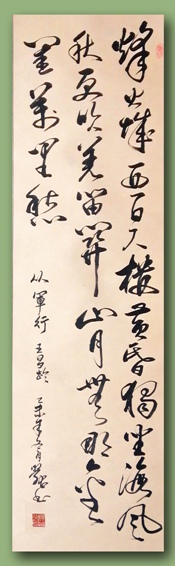 烽火城西百尺樓黃昏獨坐海風
秋更吹羌笛關山月無那金
閨萬里愁
从軍行 王昌齡
乙未年